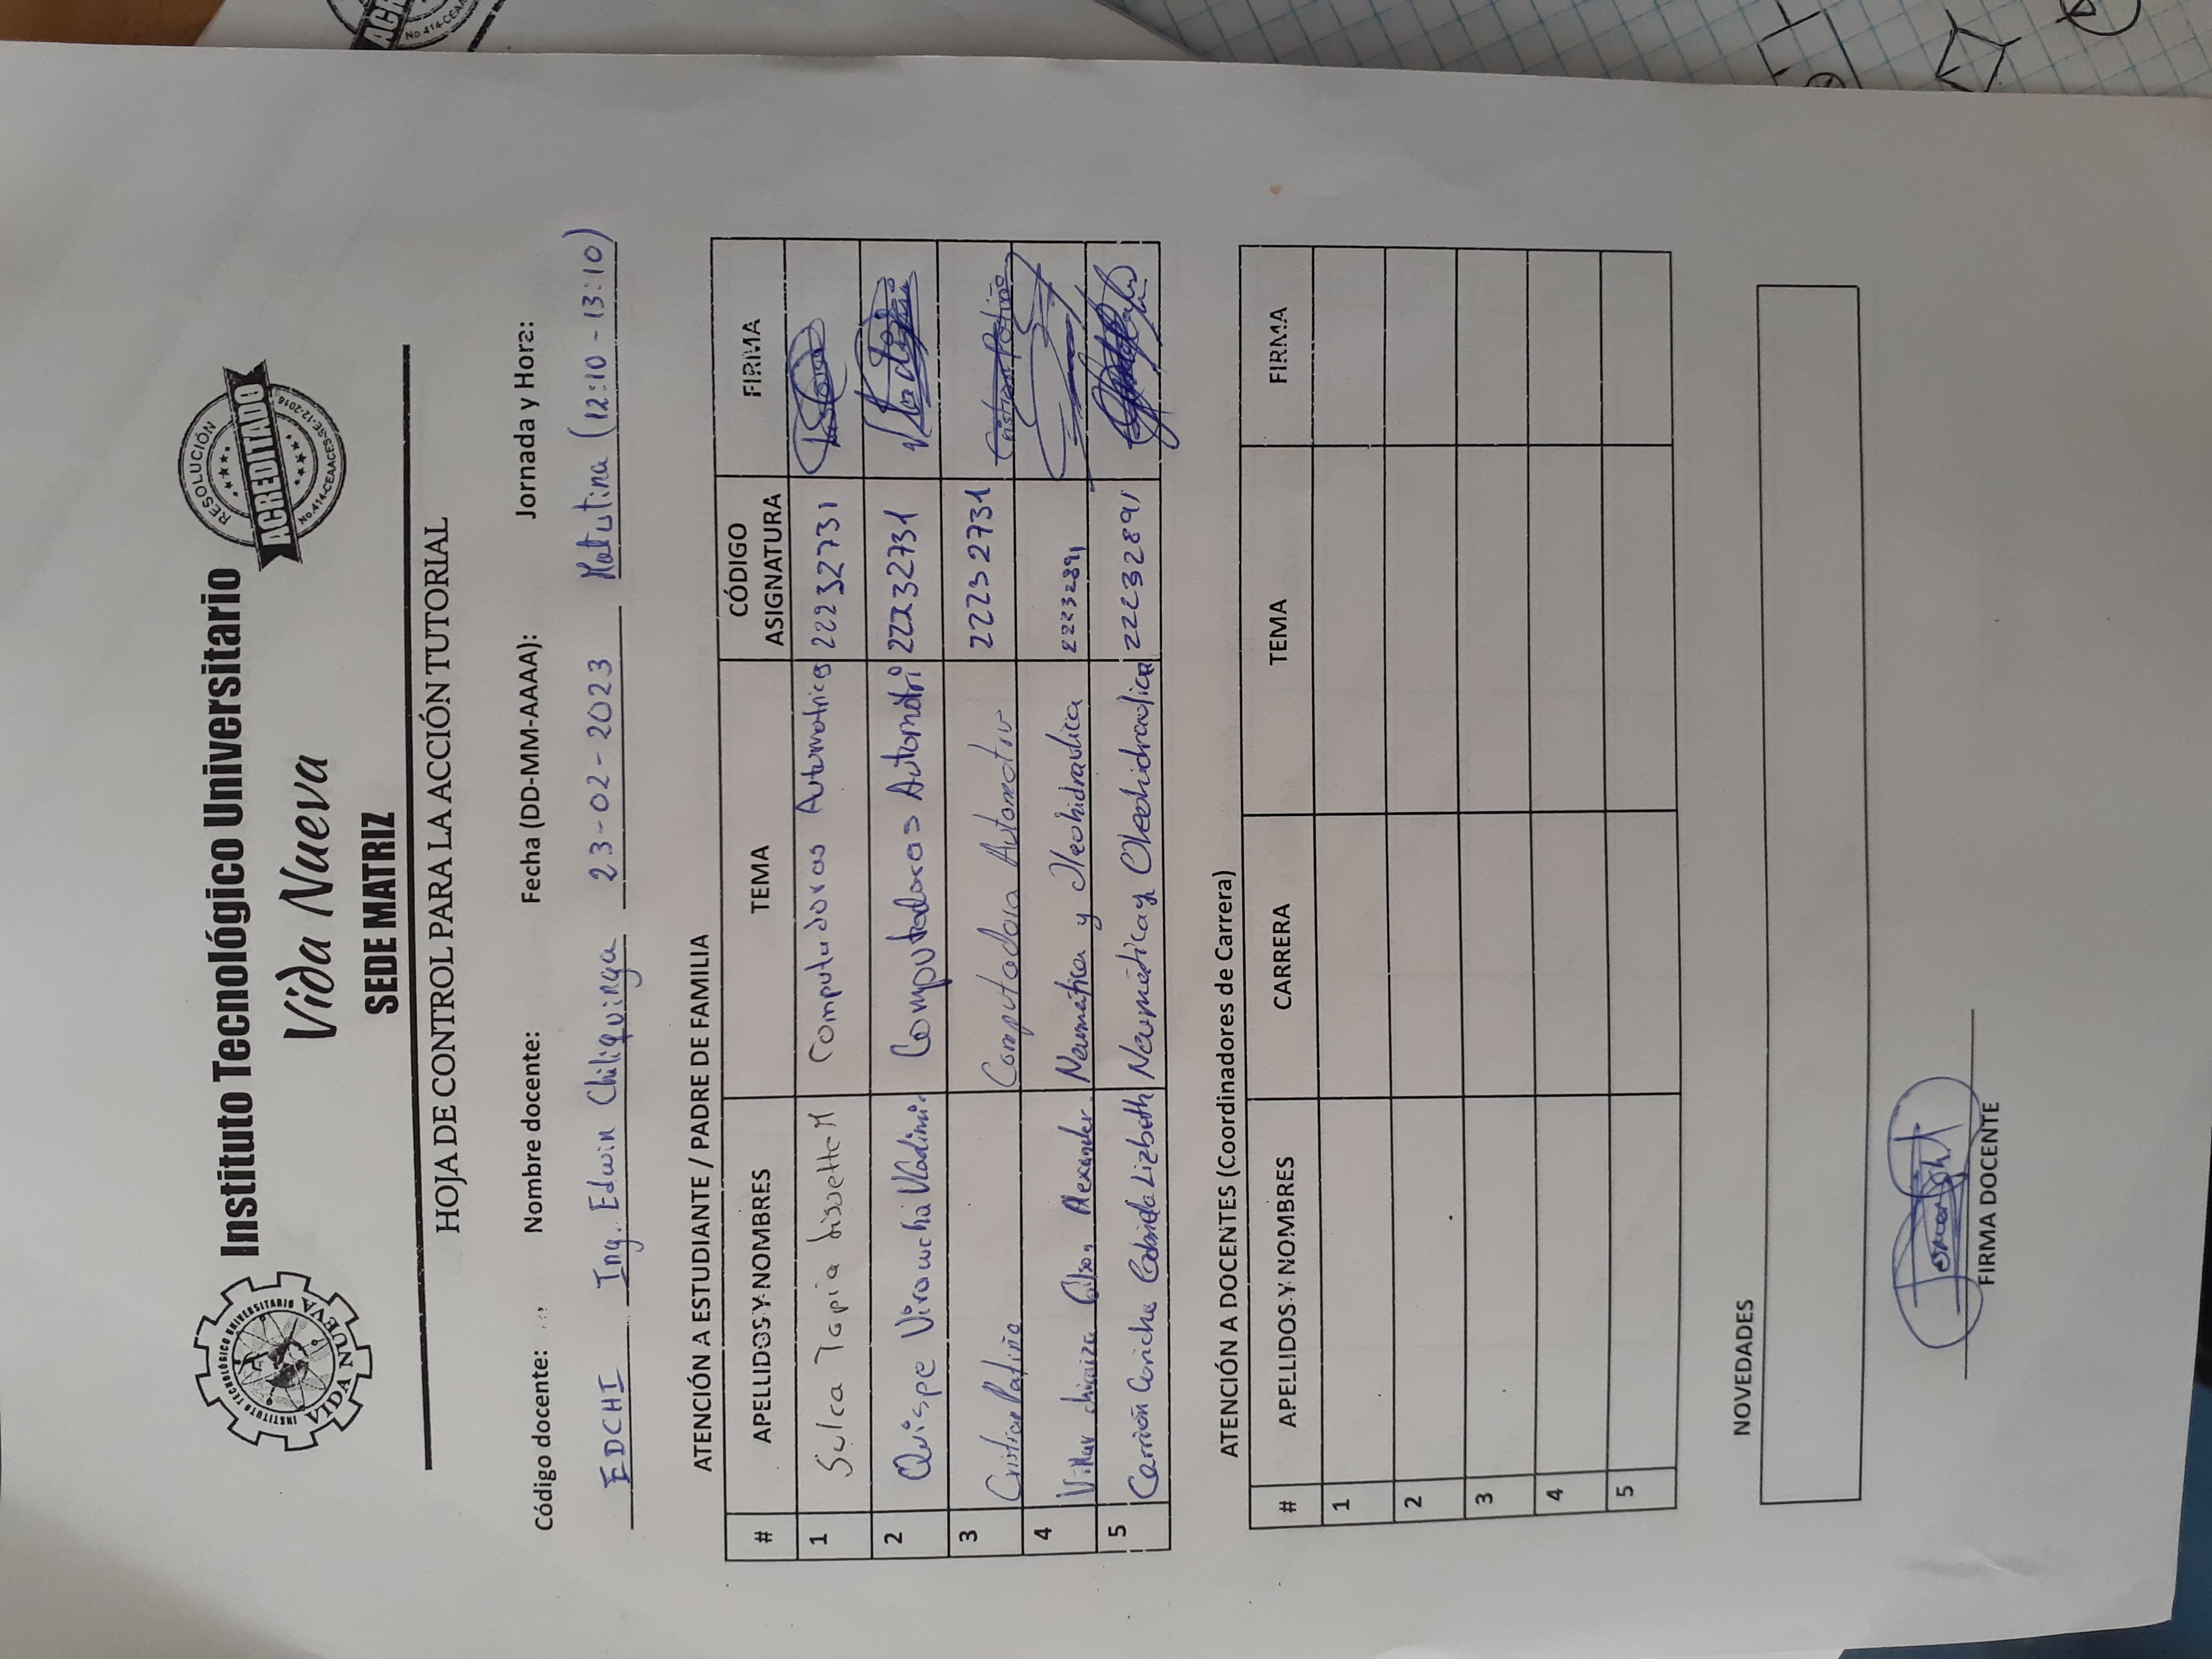 INSTITUTO TECNOLÓGICO UNIVERSITARIO
VIDA NUEVA
Instituto Tecnológico Universitario
Vida Nueva
SEDE MATRIZ
RESOLUCIÓN
ACREDITADO
No.414-CEAACES-SE-12-2016
HOJA DE CONTROL PARA LA ACCIÓN TUTORIAL
Código docente: Nombre docente: Fecha (DD-MM-AAAA): Jornada y Hora:
EDCHI Ing. Edwin Chiliquinga 23-02-2023 Matutina (12:10 - 13:10)
ATENCIÓN A ESTUDIANTE / PADRE DE FAMILIA
# APELLIDOS Y NOMBRES TEMA CÓDIGO ASIGNATURA FIRMA
1 Sulca Tapia Lissette M Computadoras Automotrices 22232731
2 Quispe Viracucha Vladimir Computadoras Automotri 22232731 Vladimir
3 Cristian Patiño Computadora Automotriz 22232731 Cristian Patiño
4 Villar Alexander Neumática y Oleohidraulica 22232891
5 Carrión Coricha Gabriela Lizbeth Neumática y Oleohidraulica 22232891
ATENCIÓN A DOCENTES (Coordinadores de Carrera)
# APELLIDOS Y NOMBRES CARRERA TEMA FIRMA
1
2
3
4
5
NOVEDADES
FIRMA DOCENTE